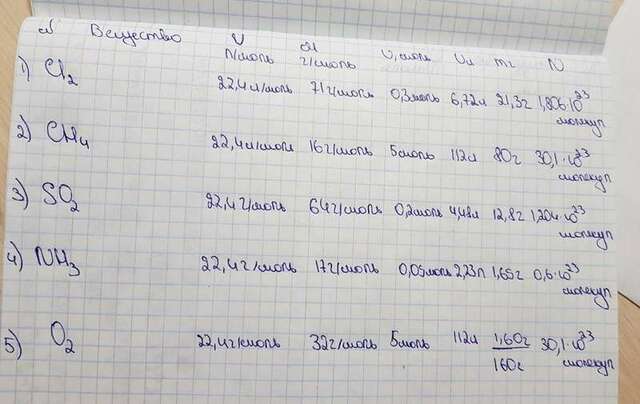 N Вещество V M ν, моль Vл mг N
л/моль г/моль
1) Cl₂ 22,4л/моль 71г/моль 0,3моль 6,72л 21,3г 1,806·10²³
молекул
2) CH₄ 22,4л/моль 16г/моль 5моль 112л 80г 30,1·10²³
молекул
3) SO₂ 22,4г/моль 64г/моль 0,2моль 4,48л 12,8г 1,204·10²³
молекул
4) NH₃ 22,4г/моль 17г/моль 0,05моль 2,23л 1,65г 0,6·10²³
молекул
5) O₂ 22,4г/моль 32г/моль 5моль 112л 1,60г 30,1·10²³
160г молекул